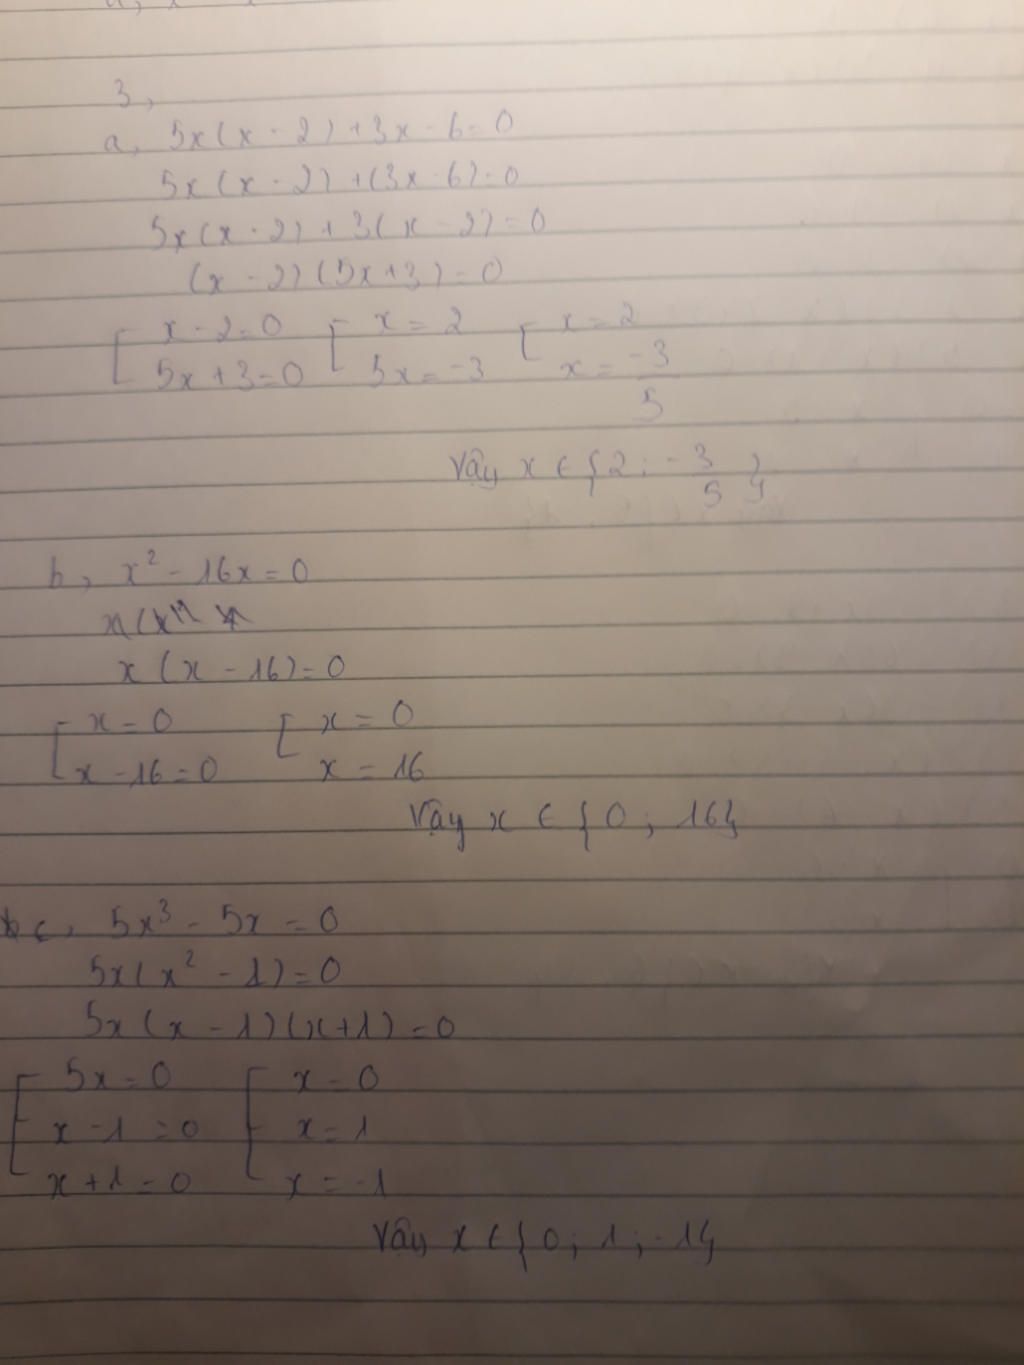 3,
a, 5x(x - 2) + 3x - 6 = 0
5x(x - 2) + (3x - 6) = 0
5x(x - 2) + 3(x - 2) = 0
(x - 2)(5x + 3) = 0
[ x - 2 = 0 [ x = 2 [ x = 2
5x + 3 = 0 5x = -3 x = -3/5
Vậy x ∈ {2 ; -3/5}
b, x² - 16x = 0
x(x - 16) = 0
[ x = 0 [ x = 0
x - 16 = 0 x = 16
Vậy x ∈ {0 ; 16}
c, 5x³ - 5x = 0
5x(x² - 1) = 0
5x(x - 1)(x + 1) = 0
[ 5x = 0 [ x = 0
x - 1 = 0 x = 1
x + 1 = 0 x = -1
Vậy x ∈ {0 ; 1 ; -1}